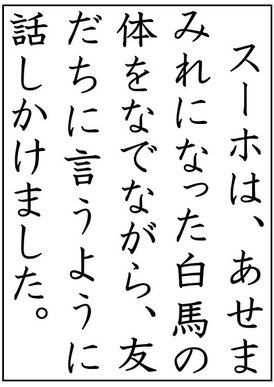 スーホは、あせま
みれになった白馬の
体をなでながら、友
だちに言うように
話しかけました。